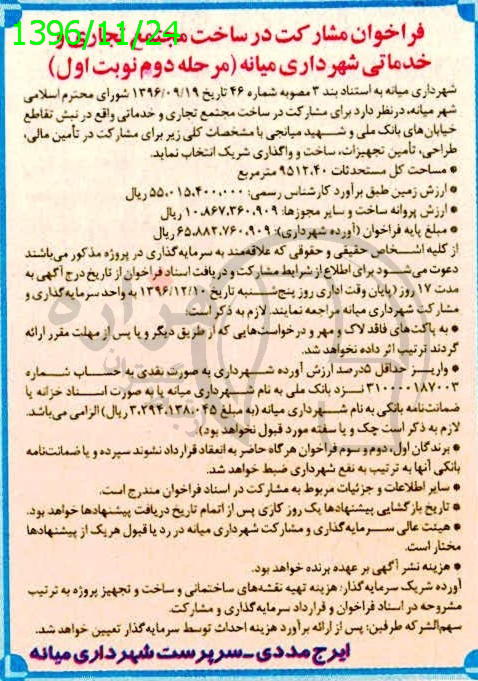 1396/11/24
فراخوان مشارکت در ساخت مجتمع تجاری و
خدماتی شهرداری میانه (مرحله دوم نوبت اول)
شهرداری میانه به استناد بند ۳ مصوبه شماره ۴۶ تاریخ ۱۳۹۶/۰۹/۱۹ شورای محترم اسلامی
شهر میانه، درنظر دارد برای مشارکت در ساخت مجتمع تجاری و خدماتی واقع در نبش تقاطع
خیابان های بانک ملی و شهید میانجی با مشخصات کلی زیر برای مشارکت در تأمین مالی،
طراحی، تأمین تجهیزات، ساخت و واگذاری شریک انتخاب نماید.
* مساحت کل مستحدثات ۹۵۱۲،۴۰ مترمربع
* ارزش زمین طبق برآورد کارشناس رسمی: ۵۵،۰۱۵،۴۰۰،۰۰۰ ریال
* ارزش پروانه ساخت و سایر مجوزها: ۱۰،۸۶۷،۳۶۰،۹۰۹ ریال
* مبلغ پایه فراخوان (آورده شهرداری): ۶۵،۸۸۲،۷۶۰،۹۰۹ ریال
از کلیه اشخاص حقیقی و حقوقی که علاقه‌مند به سرمایه‌گذاری در پروژه مذکور می‌باشند
دعوت می‌شود برای اطلاع از شرایط مشارکت و دریافت اسناد فراخوان از تاریخ درج آگهی به
مدت ۱۷ روز (پایان وقت اداری روز پنج‌شنبه تاریخ ۱۳۹۶/۱۲/۱۰ به واحد سرمایه‌گذاری و
مشارکت شهرداری میانه مراجعه نمایند. لازم به ذکر است:
* به پاکت‌های فاقد لاک و مهر و درخواست‌هایی که از طریق دیگر و یا پس از مهلت مقرر ارائه
گردند ترتیب اثر داده نخواهد شد.
* واریز حداقل ۵درصد ارزش آورده شهرداری به صورت نقدی به حساب شماره
۳۱۰۰۰۰۱۸۷۰۰۳ نزد بانک ملی به نام شهرداری میانه یا به صورت اسناد خزانه یا
ضمانت‌نامه بانکی به نام شهرداری میانه (به مبلغ ۳،۲۹۴،۱۳۸،۰۴۵ ریال) الزامی می‌باشد.
لازم به ذکر است چک و یا سفته مورد قبول نخواهد بود).
* برندگان اول، دوم و سوم فراخوان هرگاه حاضر به انعقاد قرارداد نشوند سپرده و یا ضمانت‌نامه
بانکی آنها به ترتیب به نفع شهرداری ضبط خواهد شد.
* سایر اطلاعات و جزئیات مربوط به مشارکت در اسناد فراخوان مندرج است.
* تاریخ بازگشایی پیشنهادها یک روز کاری پس از اتمام تاریخ دریافت پیشنهادها خواهد بود.
* هیئت عالی سرمایه‌گذاری و مشارکت شهرداری میانه در رد یا قبول هریک از پیشنهادها
مختار است.
* هزینه نشر آگهی بر عهده برنده خواهد بود.
آورده شریک سرمایه‌گذار: هزینه تهیه نقشه‌های ساختمانی و ساخت و تجهیز پروژه به ترتیب
مشروحه در اسناد فراخوان و قرارداد سرمایه‌گذاری و مشارکت.
سهم‌الشرکه طرفین: پس از ارائه برآورد هزینه احداث توسط سرمایه‌گذار تعیین خواهد شد.
ایرج مددی-سرپرست شهرداری میانه